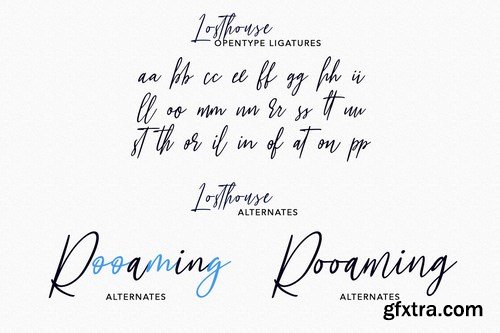 Losthouse
OPENTYPE LIGATURES
aa bb cc ee ff gg hh ii
ll oo mm nn rr ss tt uu
st th or il in of at on pp
Losthouse
ALTERNATES
Rooaming Rooaming
ALTERNATES ALTERNATES
gfxtra.com